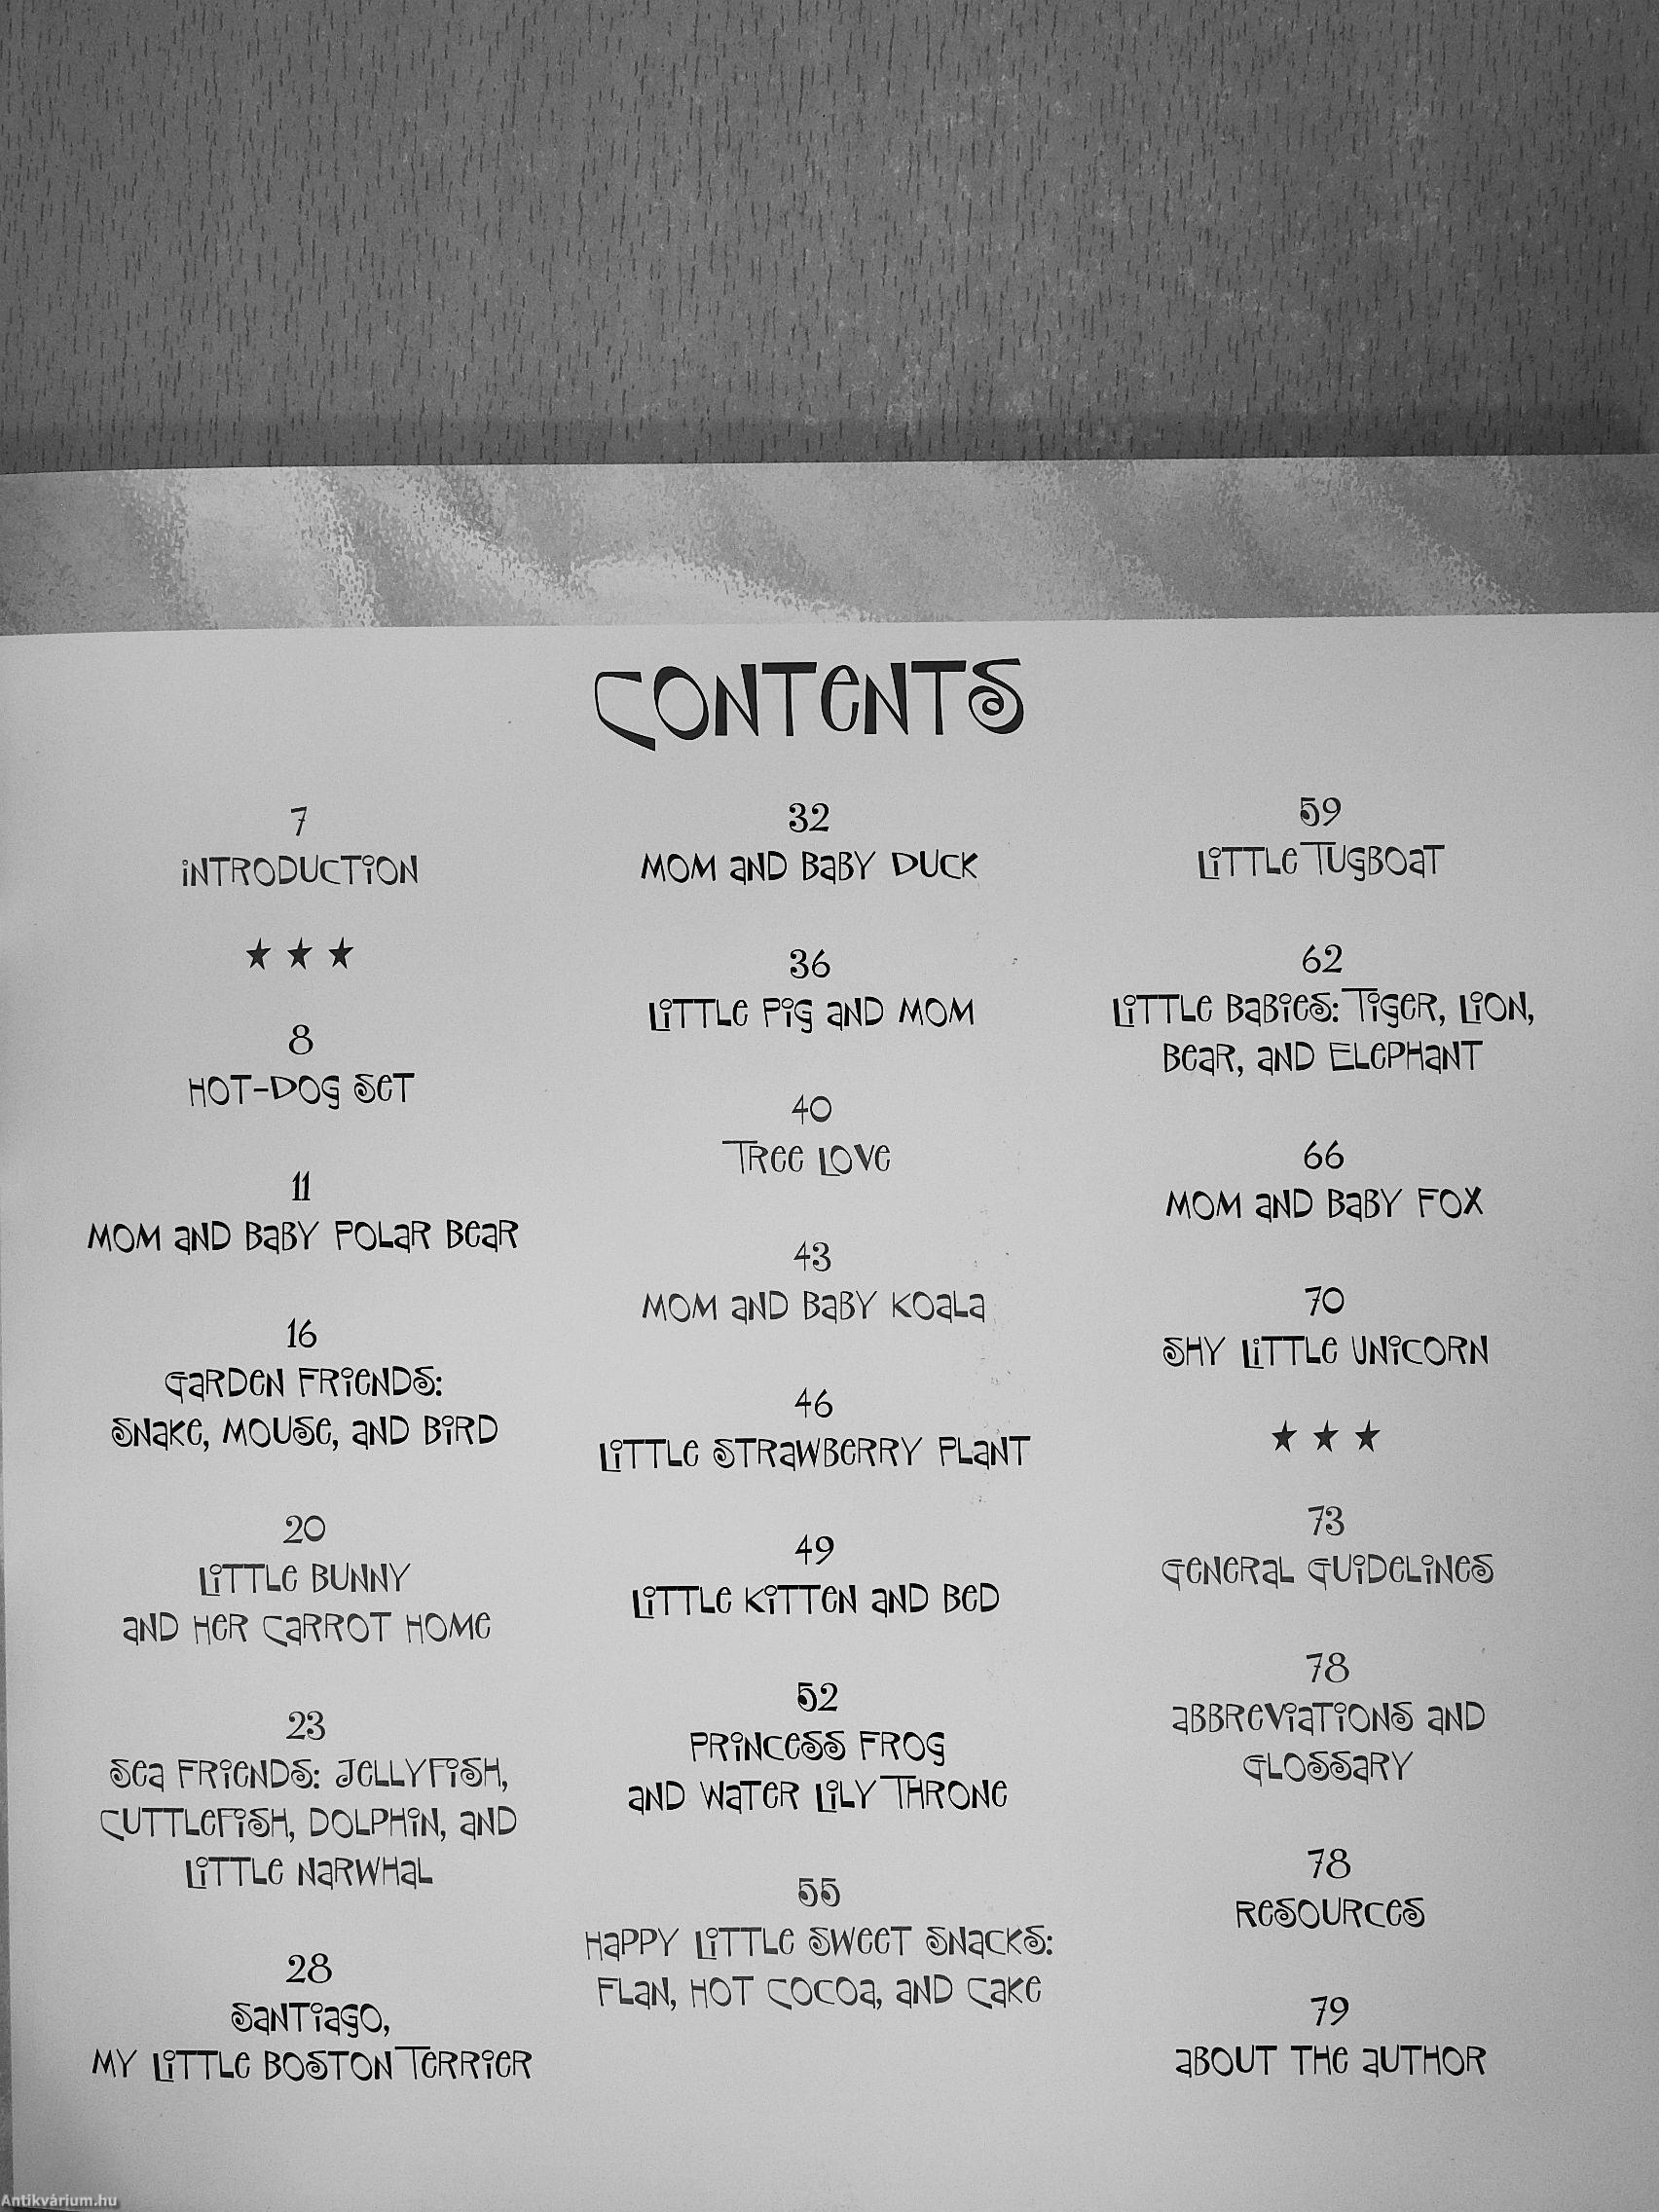 CONTENTS
7
INTRODUCTION
★ ★ ★
8
HOT-DOG SET
11
MOM AND BABY POLAR BEAR
16
GARDEN FRIENDS:
SNAKE, MOUSE, AND BIRD
20
LITTLE BUNNY
AND HER CARROT HOME
23
SEA FRIENDS: JELLYFISH,
CUTTLEFISH, DOLPHIN, AND
LITTLE NARWHAL
28
SANTIAGO,
MY LITTLE BOSTON TERRIER
32
MOM AND BABY DUCK
36
LITTLE PIG AND MOM
40
TREE LOVE
43
MOM AND BABY KOALA
46
LITTLE STRAWBERRY PLANT
49
LITTLE KITTEN AND BED
52
PRINCESS FROG
AND WATER LILY THRONE
55
HAPPY LITTLE SWEET SNACKS:
FLAN, HOT COCOA, AND CAKE
59
LITTLE TUGBOAT
62
LITTLE BABIES: TIGER, LION,
BEAR, AND ELEPHANT
66
MOM AND BABY FOX
70
SHY LITTLE UNICORN
★ ★ ★
73
GENERAL GUIDELINES
78
ABBREVIATIONS AND
GLOSSARY
78
RESOURCES
79
ABOUT THE AUTHOR
Antikvárium.hu